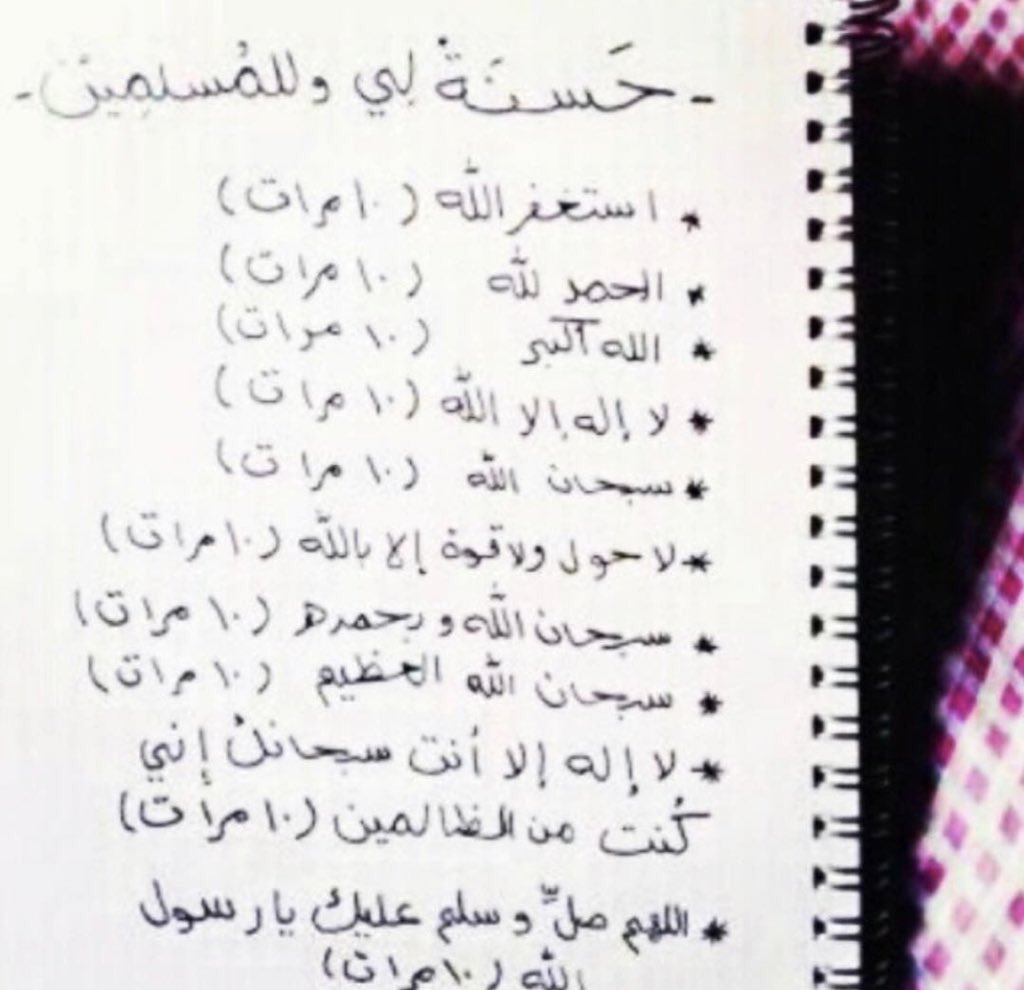 - حَسنَةٌ لي وللمُسلمين -
* استغفر الله (١٠ مرات)
* الحمد لله (١٠ مرات)
* الله أكبر (١٠ مرات)
* لا إله إلا الله (١٠ مرات)
* سبحان الله (١٠ مرات)
* لا حول ولا قوة إلا بالله (١٠ مرات)
* سبحان الله وبحمده (١٠ مرات)
* سبحان الله العظيم (١٠ مرات)
* لا إله إلا أنت سبحانك إني
كُنت من الظالمين (١٠ مرات)
* اللهم صلِّ وسلم عليك يا رسول
الله (١٠ مرات)